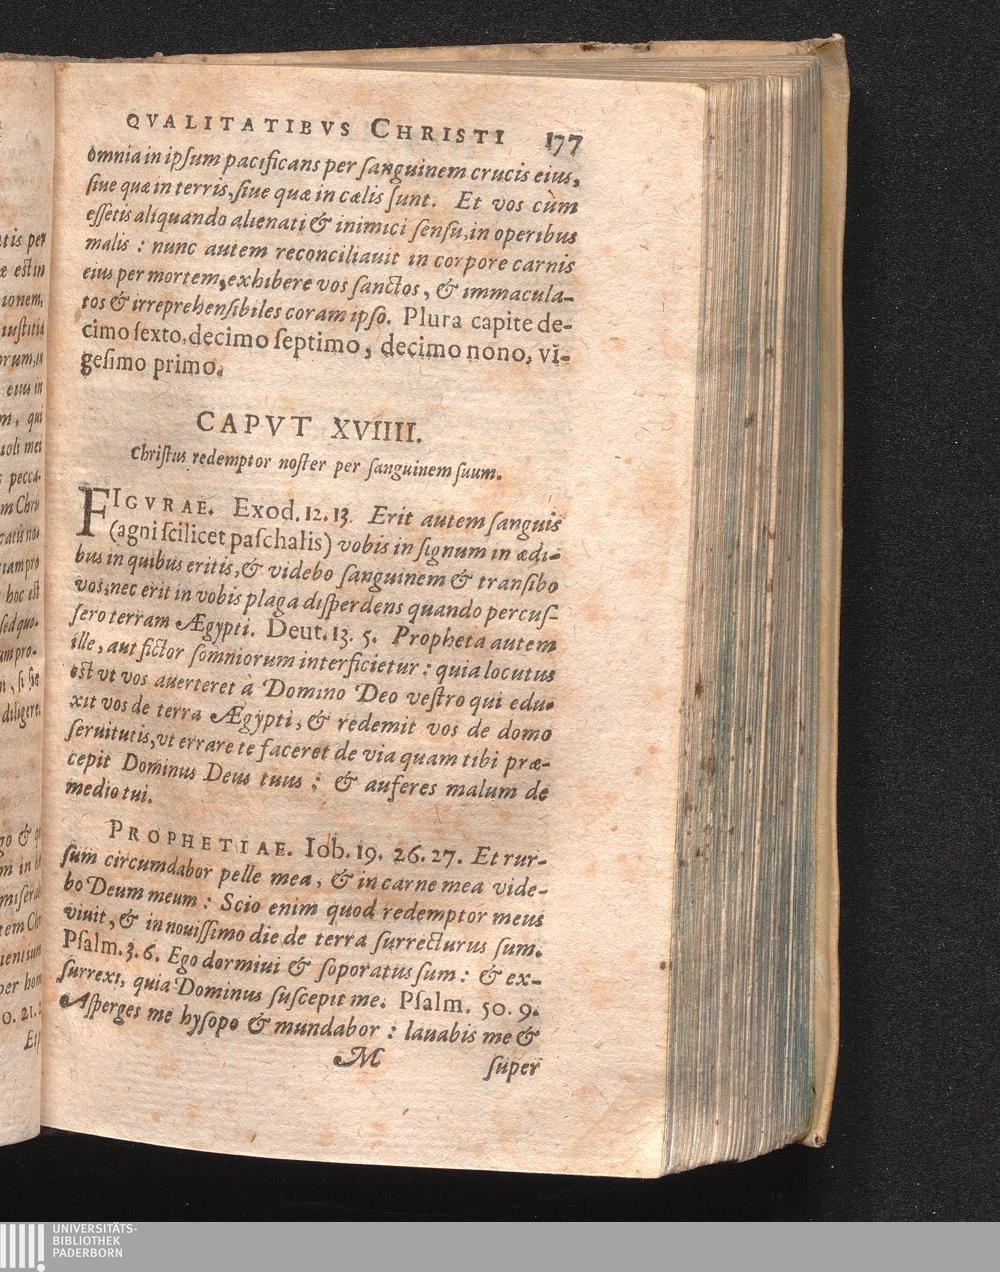 QVALITATIBVS CHRISTI 177
omnia in ipsum pacificans per sanguinem crucis eius,
siue quæ in terris, siue quæ in cælis sunt. Et vos cùm
essetis aliquando alienati & inimici sensu, in operibus
malis : nunc autem reconciliauit in corpore carnis
eius per mortem, exhibere vos sanctos, & immacula-
tos & irreprehensibiles coram ipso. Plura capite de-
cimo sexto, decimo septimo, decimo nono, vi-
gesimo primo.
CAPVT XVIIII.
Christus redemptor noster per sanguinem suum.
FIGVRAE. Exod. 12. 13. Erit autem sanguis
(agni scilicet paschalis) vobis in signum in ædi-
bus in quibus eritis, & videbo sanguinem & transibo
vos, nec erit in vobis plaga disperdens quando percus-
sero terram Ægypti. Deut. 13. 5. Propheta autem
ille, aut fictor somniorum interficietur : quia locutus
est vt vos auerteret à Domino Deo vestro qui edu-
xit vos de terra Ægypti, & redemit vos de domo
seruitutis, vt errare te faceret de via quam tibi præ-
cepit Dominus Deus tuus : & auferes malum de
medio tui.
PROPHETIAE. Iob. 19. 26. 27. Et rur-
sum circumdabor pelle mea, & in carne mea vide-
bo Deum meum : Scio enim quod redemptor meus
viuit, & in nouissimo die de terra surrecturus sum.
Psalm. 3. 6. Ego dormiui & soporatus sum : & ex-
surrexi, quia Dominus suscepit me. Psalm. 50. 9.
Asperges me hysopo & mundabor : lauabis me &
M super
tis per
est in
ionem,
iustitia
eius in
m, qui
pecca.
m Chri
hoc est
sed quo-
um pro-
diligere.
per hom
21.
UNIVERSITÄTS-
BIBLIOTHEK
PADERBORN